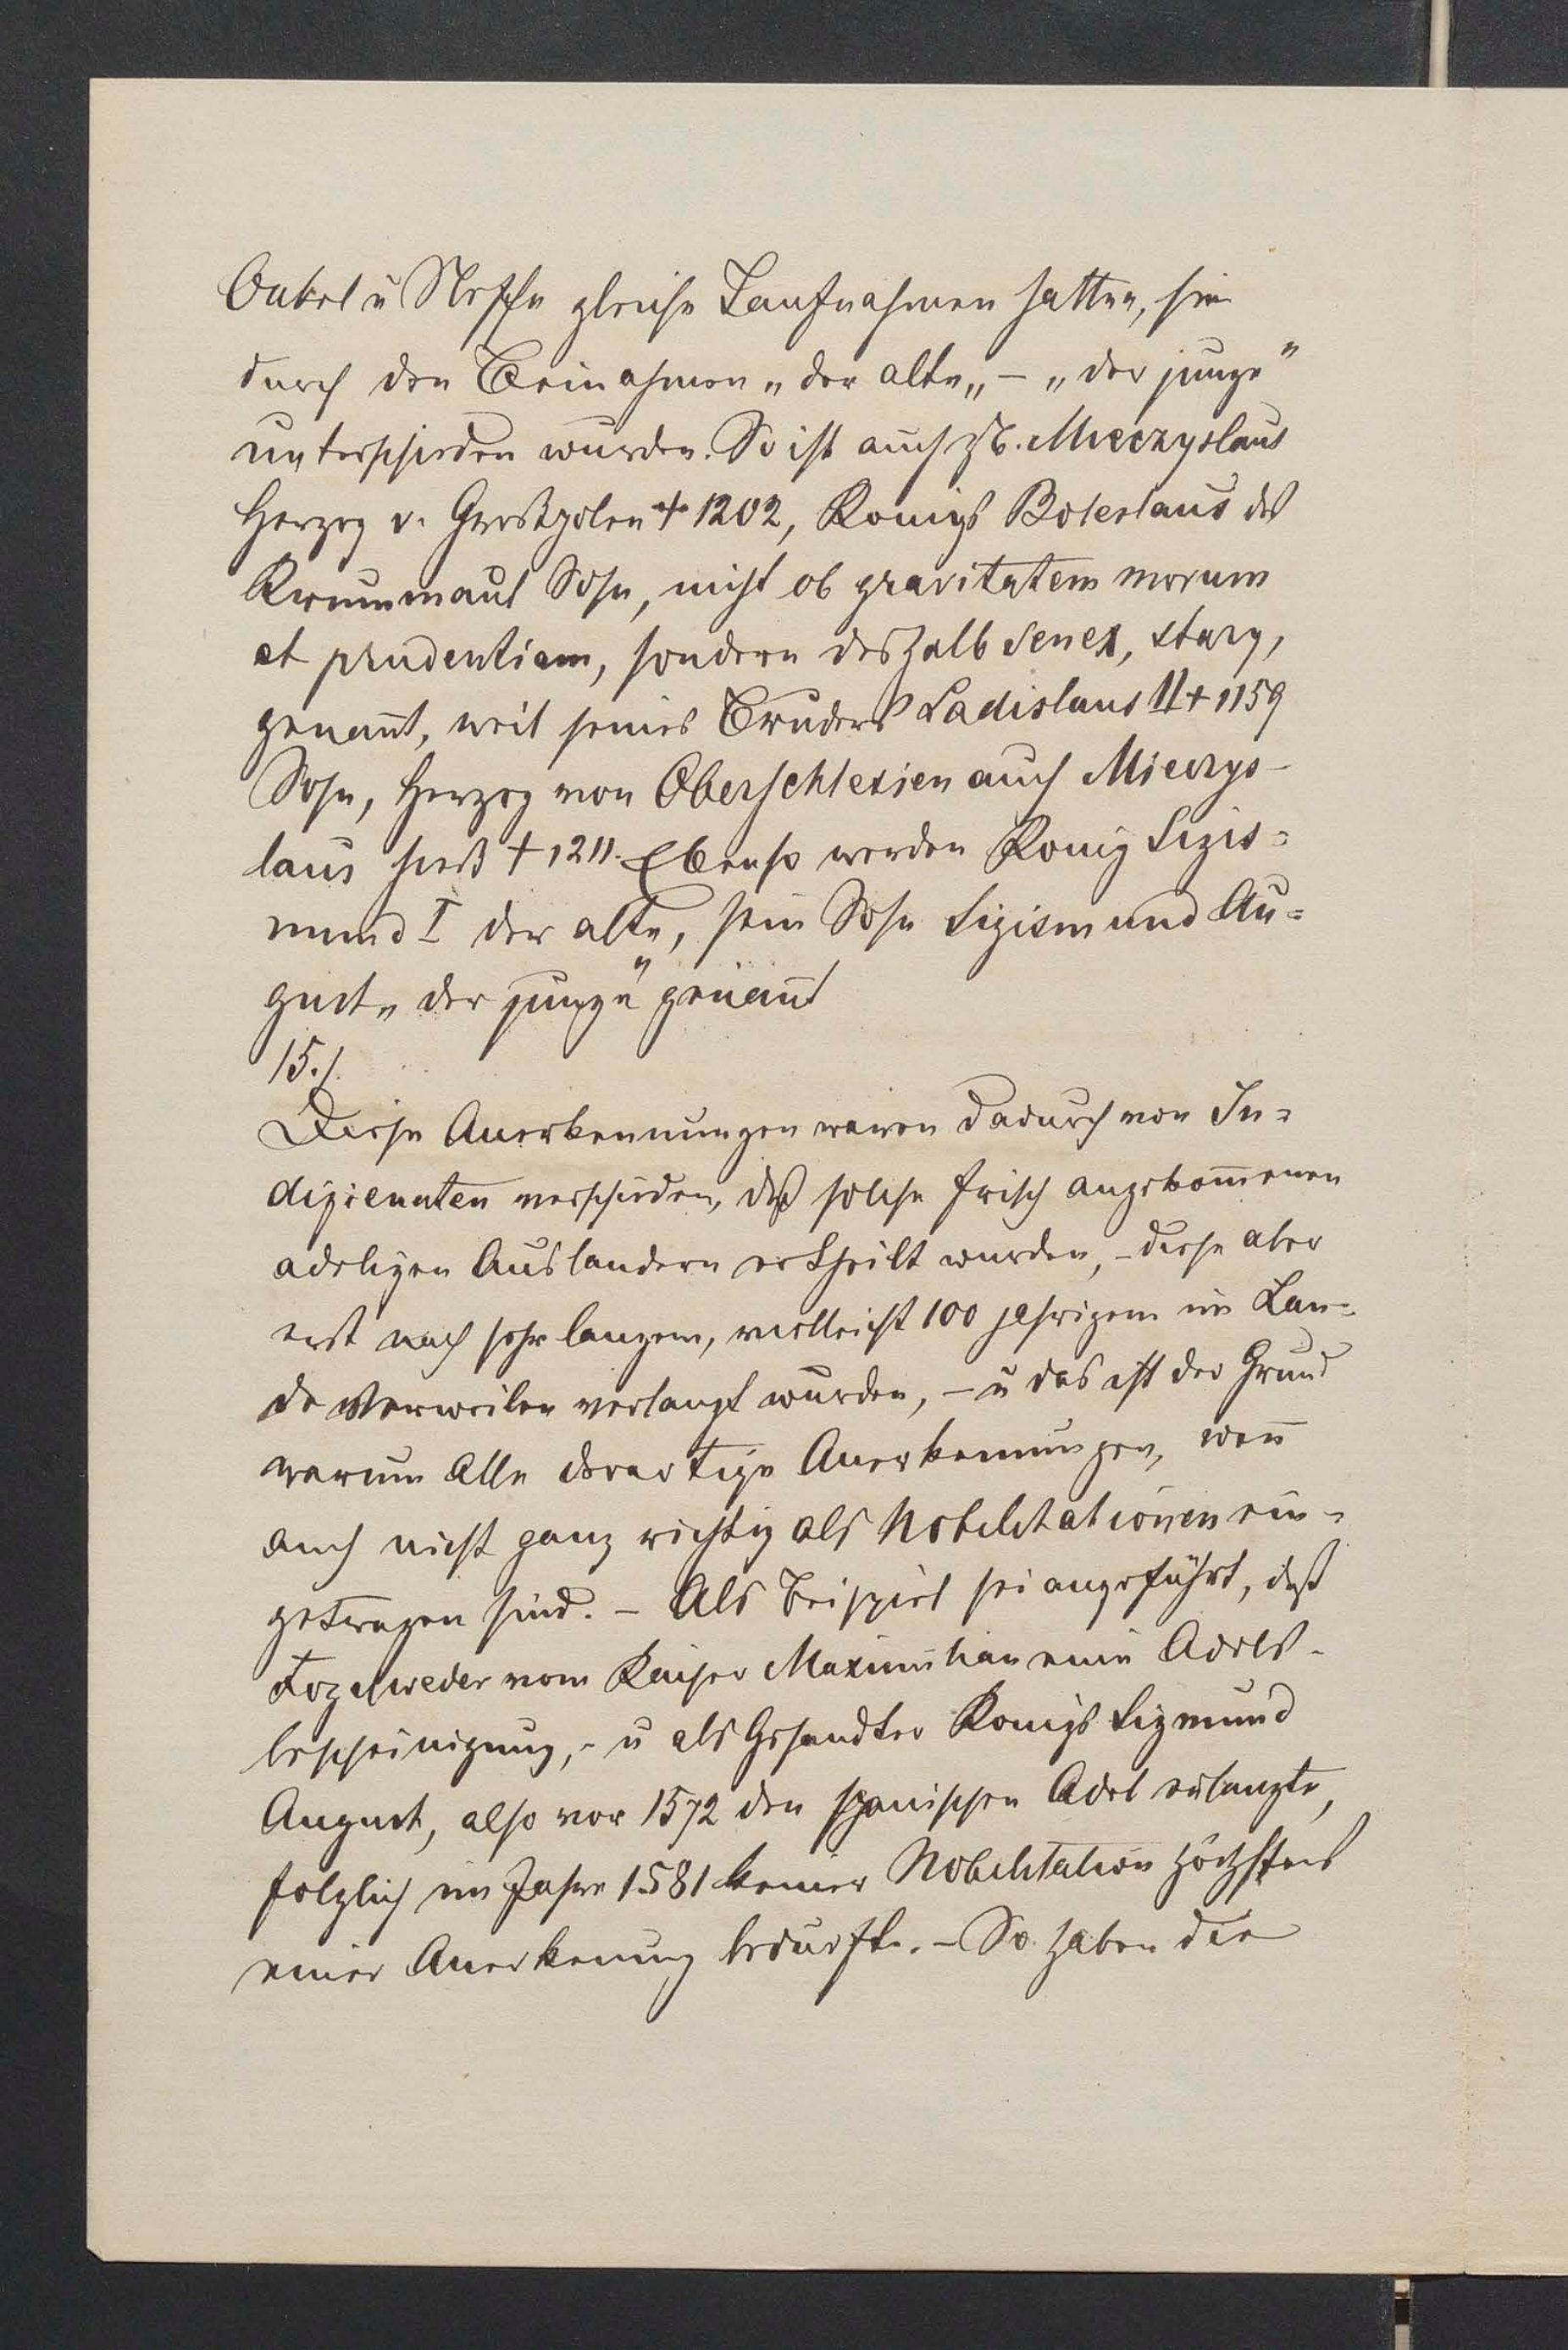 Onkel u Neffe gleiche Taufnahmen hatten, sie
durch den Beinahmen „der alte„ – „der junge"
unterschieden wurden. So ist auch zB. Mieczyslaus
Herzog v. Großpolen † 1202, Konigs Boleslaus des
Krummaul Sohn, nicht ob gravitatem morum
et prudentiam, sondern deshalb senex, stary,
genannt, weil seines Bruders Ladislaus II † 1159
Sohn, Herzog von Oberschlesien auch Mieczys-
laus hieß † 1211. Ebenso werden Konig Sigis=
mund I der alte, sein Sohn Sigismund Au=
gust „der junge" genannt
15./
Diese Anerkennungen waren dadurch von In=
digienaten verschieden, daß solche frisch angekommenen
adeligen Auslandern ertheilt wurden, – diese aber
erst nach sehr langem, vielleicht 100 jahrigem im Lan=
de Verweilen verlangt wurden, – u das ist der Grund
warum Alle derartige Anerkennungen, wenn
auch nicht ganz richtig als Nobilitationen ein=
getragen sind. – Als Beispiel sei angeführt, daß
Fogelweder vom Kaiser Maximilian eine Adels-
bescheinigung, – u als Gesandter Konigs Sigmund
August, also vor 1572 den spanischen Adel erlangte,
folglich im Jahre 1581 keiner Nobilitation höchstens
einer Anerkenung bedurfte. – So haben die